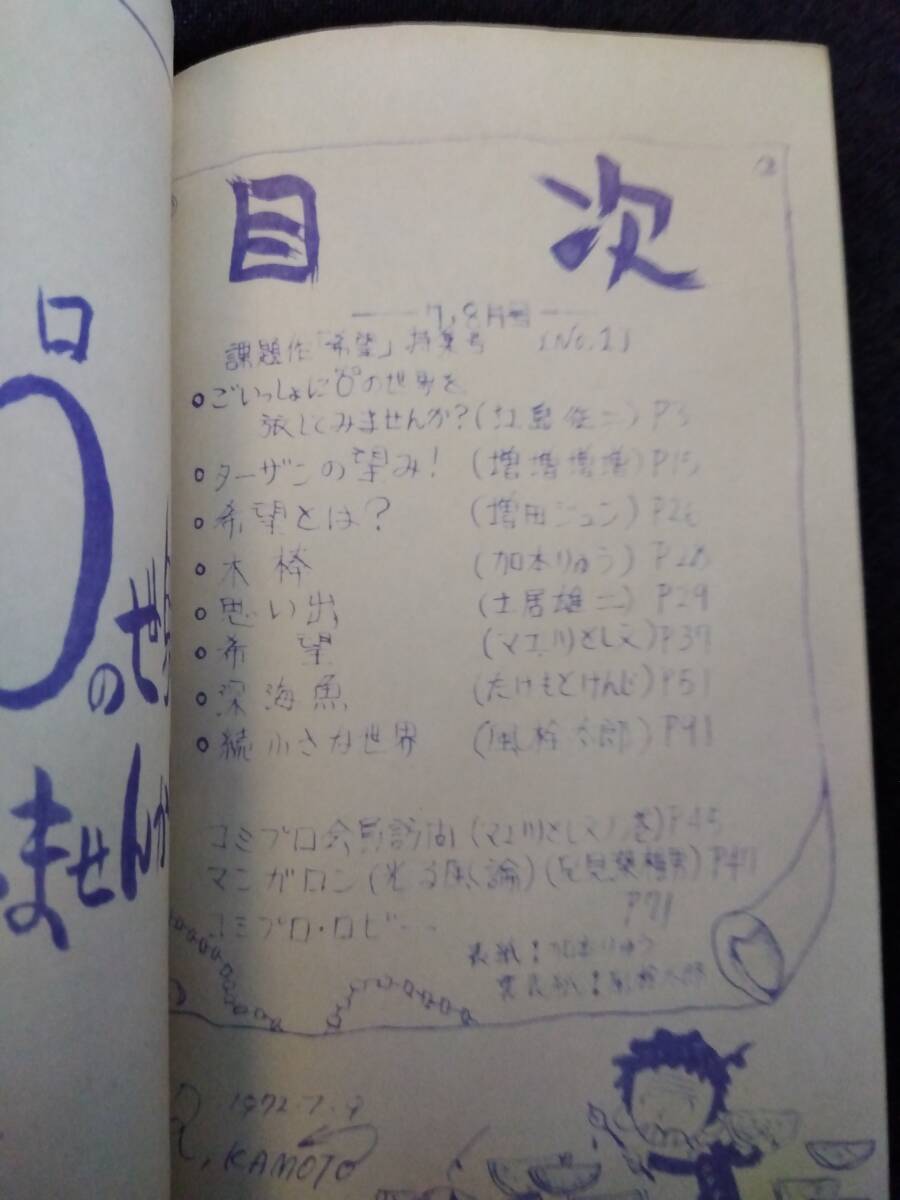 目 次
7,8月号
課題作「希望」特集号 (No.1)
ごいっしょに の世界を
旅してみませんか? P3
ターザンの望み! (増増増増) P15
希望とは? (増田ジュン)
木棒 (加本りゅう) P28
思い出 (土居雄二) P29
希 望 (マエ川としえ) P39
深海魚 (たけもとけんじ) P51
続小さな世界 太郎) P91
コミプロ会員訪問 (マエ川としえ P45
マンガロン (光る風論) P47
コミプロ・ロビー P71
表紙: 加本りゅう
裏表紙: 太郎
1972.7.9
R, KAMOTO
ロ
の世
ませんか